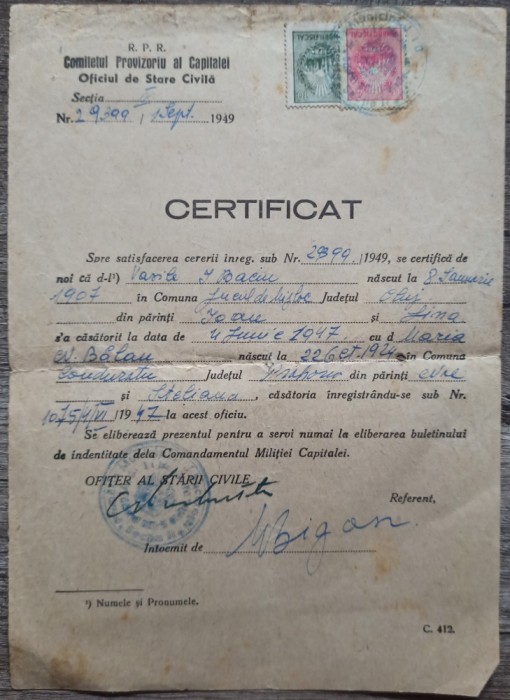 R. P. R.
Comitetul Provizoriu al Capitalei
Oficiul de Stare Civilă
Secția I
Nr. 29399 / 1 Sept. 1949
CERTIFICAT
Spre satisfacerea cererii înreg. sub Nr. 29399 /1949, se certifică de
noi că d-l¹) Vasile I Baciu născut la 8 Ianuarie
1907 în Comuna Jucul de Mijloc Județul Cluj
din părinți Ioan și Zina
s'a căsătorit la data de 4 Iunie 1947 cu d Maria
N. Bălan născut la 22 Oct. 1924 în Comuna
Conduratu Județul Prahova din părinți
și Steliana, căsătoria înregistrându-se sub Nr.
1075/VI/1947 la acest oficiu.
Se eliberează prezentul pentru a servi numai la eliberarea buletinului
de indentitate dela Comandamentul Miliției Capitalei.
OFIȚER AL STĂRII CIVILE,
Referent,
Intocmit de
¹) Numele și Pronumele.
C. 412.